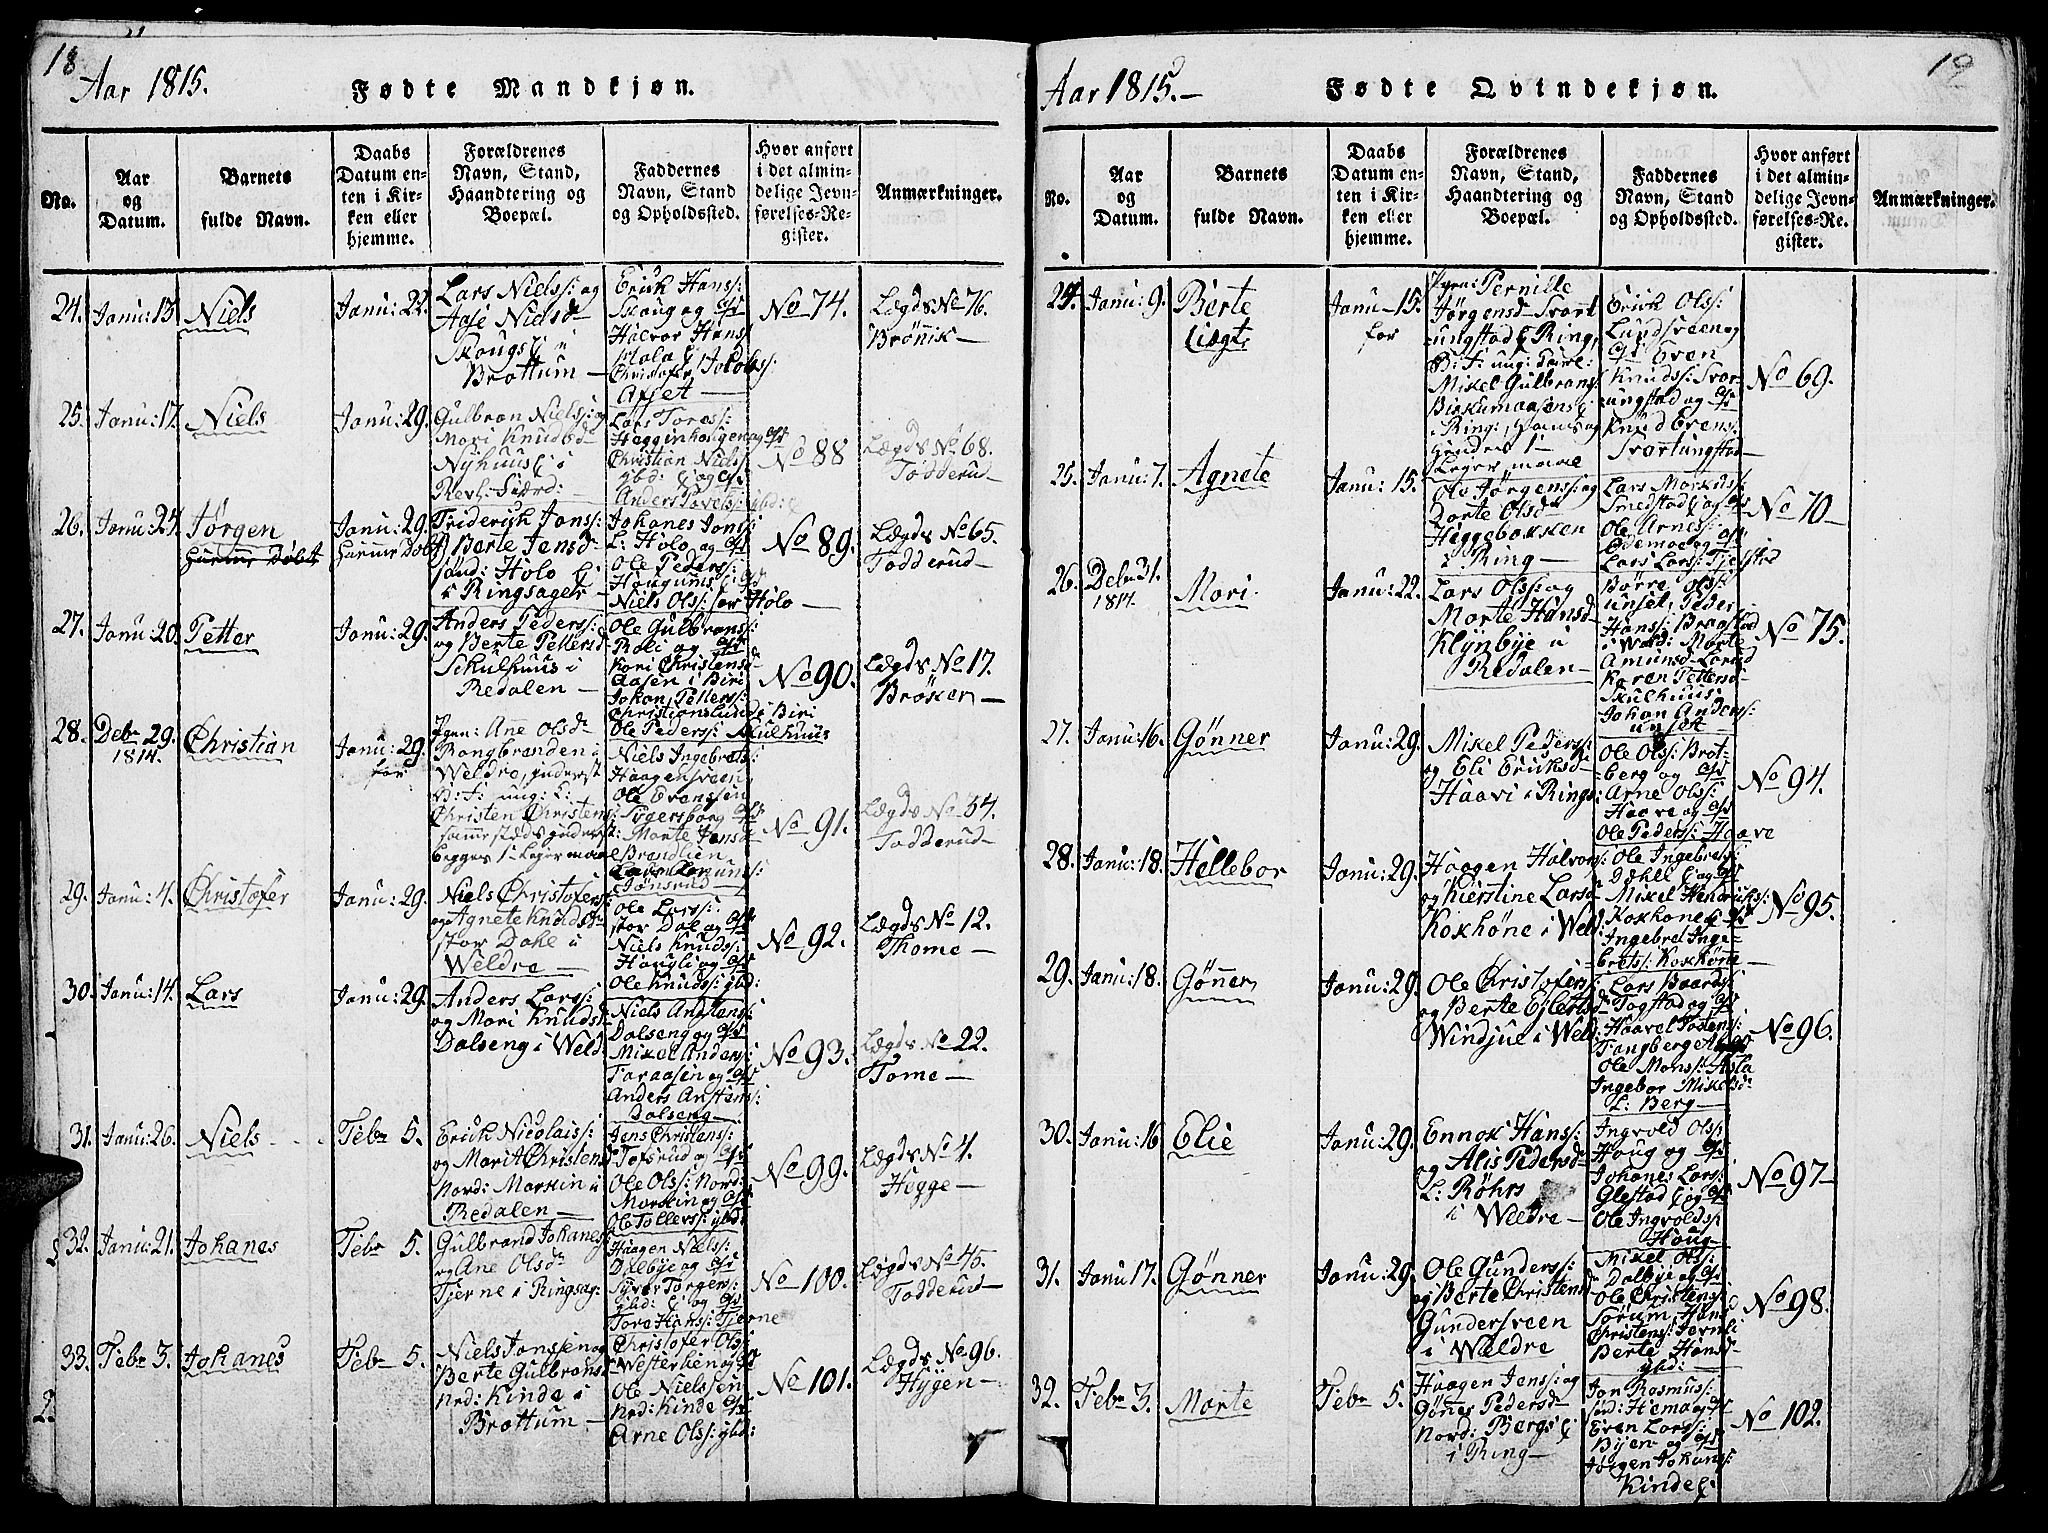 18
Aar 1815.
Fødte Mandkjøn.
No.
Aar
og
Datum.
Barnets
fulde Navn.
Daabs
Datum en-
ten i Kir-
ken eller
hjemme.
Forældrenes
Navn, Stand,
Haandtering og
Boepæl.
Faddernes
Navn, Stand
og Opholdssted.
Hvor anført
i det almin-
delige Jevn-
førelses-Re-
gister.
Anmærkninger.
24. Janu: 13. Niels Janu: 22.
Lars Niels: og
Aase Nielsd
Skougs
Brøttum
Erick Hans:
Skoug og
Halvor Hans
Mola
Christofer Jacobs:
Afset
No 74.
Lægds No 76.
Brønik
25. Janu: 17. Niels Janu: 29.
Gulbran Niels: og
Mari Knudsd
Nyhuus i
Lars Tores:
Hegginhougen og
Christian Niels:
gbd: og
Anders Povels: gbd:
No 88
Lægds No 68.
Todderud
26. Janu: 24. Jørgen Janu: 29.
Friderich Jans:
Berte Jensd
Holo
i Ringsager
Johanes Jons:
L: Holo og
Ole Peders:
Hougums
Niels Ols: sør Holo
No 89.
Lægds No 65.
Todderud
27. Janu: 20. Petter Janu: 29.
Anders Peders:
og Berte Pettersd
Schulhuus i
Redalen
Ole Gulbrans:
Roli og
Kari Christensd
Aasen i Biri
Johan Petters:
Christianslund i Biri
Ole Peders: Skulhuus
No 90.
Lægds No 17.
Brøker
28. Debr 29. Christian Janu: 29.
1814. for
Pgen: Ane Olsd
Bongbranden i
Weldre, inderst
B: F: ung: L:
Christen Christens:
sammesteds inderst:
begges 1 Lejermaal
Niels Ingebrets:
Haagensveen
Ole Evenssen
Sygersborg
Marte Jensd
Brendlien
Jønsrud
No 91.
Lægds No 34.
Todderud
29. Janu: 4. Christofer Janu: 29.
Niels Christofers:
og Agnete Knudsd
stor Dahl i
Weldre
Ole Lars:
stor Dal og
Niels Knuds:
Hougli og
Ole Knuds: gbd:
No 92.
Lægds No 12.
Thome
30. Janu: 14. Lars Janu: 29.
Anders Lars:
og Mari Knudsd
Dalseng i Weld:
Niels Anstens:
Dalseng og
Mikel Anders:
Faraasen og
Anders Anstens:
Dalseng
No 93.
Lægds No 22.
Tome
31. Janu: 26. Niels Febr 5.
Erick Nicolais:
og Marit Christensd
Nord: Markin i
Redalen
Jens Christens:
Tofsrud og
Ole Ols: Nord:
Markin og
Ole Tollers: gbd:
No 99.
Lægds No 4.
Hegge
32. Janu: 21. Johanes Febr 5.
Gulbrand Johanes:
og Ane Olsd
Tjerne i Ringsag:
Haagen Niels:
Dalbye og
Syver Jørgens:
gbd: og
Tore Hans: Tjerne
No 100.
Lægds No 45.
Todderud
33. Febr 3. Johanes Febr 5.
Niels Jonssen og
Berte Gulbransd
Ned: Kinde i
Brøttum
Christofer Ols:
Westerlien og
Ole Nielssen
Ned: Kinde
Arne Ols: gbd:
No 101.
Lægds No 96.
Hygen
2.
19
Aar 1815.
Fødte Qvindekjøn.
No.
Aar
og
Datum.
Barnets
fulde Navn.
Daabs
Datum en-
ten i Kir-
ken eller
hjemme.
Forældrenes
Navn, Stand,
Haandtering og
Boepæl.
Faddernes
Navn, Stand
og Opholdssted.
Hvor anført
i det almin-
delige Jevn-
førelses-Re-
gister.
Anmærkninger.
24. Janu: 9. Berte Janu 15.
for
Pgen: Pernille
Jørgensd Svart
ungstad Ring,
B: F: ung: Carl:
Mikel Gulbrans:
Birkumaasens
i Ring:, Hans og
hendes 1
Lejermaal
Erick Ols:
Lundsveen og
Even
Knuds: Svar-
tungstad og
Knud Evens:
Svartungstad
No 69.
25. Janu: 7. Agnete Janu: 15.
Ole Jørgens: og
Dorte Olsd
Heggebakken
i Ring
Lars Markus:
Smedstad og
Ole Arnes:
Edemoe og
Lars Lars: Tjelstad
No 70
26. Debr 31. Mari Janu: 22.
1814.
Lars Ols: og
Marte Hansd
Klynbye i
Redalen
Børre Ols:
unset, Peder
Hans: Braastad
i Weld: Marte
Amunsd
Karen Pettersd
Skulhuus:
Johan Anders:
unset
No 75.
27. Janu: 16. Gønner Janu: 29.
Mikel Peders:
og Eli Ericksd
Haavi i Rings:
Ole Ols: Brot-
berg og
Arne Ols:
Haave og
Ole Peders: Haave
No 94.
28. Janu: 18. Hellebor Janu: 29.
Haagen Halvors:
og Kierstine Larsd
Kokhøne i Weld:
Ole Ingebrets:
Dæhle og
Mikel Hendriks:
Kokhone
Ingebret Inge-
brets: Kokhøne
No 95.
29. Janu: 18. Gønner Janu: 29.
Ole Christofers:
og Berte Ejlertsd
Windjue i Weld:
Lars Baards:
Togstad og
Haavel Tostens:
Fangberg
Ole Mons: Asla
Ingebor Mikelsd
L: Berg
No 96.
30. Janu: 16 Elie Janu: 29.
Ennok Hans:
og Alis Pedersd
L: Røhrs
i Weldre
Ingvold Ols:
Houg og
Johanes Lars:
Glestad og
Ole Ingvolds:
Houg
No 97
31. Janu 17. Gønner Janu: 29
Ole Gunders:
og Berte Christensd
Gundersveen
i Weldre
Mikel Ols:
Dalbye og
Ole Christens:
Sørum, Hans
Christens: Jernli
Berte Hansd
gbd:
No 98.
32. Febr 3. Marte Febr 5.
Haagen Jens: og
Gønes Pedersd
Nord: Bergs
i Ring
Jon Rasmus:
Sød: Hemæ og
Even Lars:
Byen og
Jørgen Johans:
Kinde
No 102.